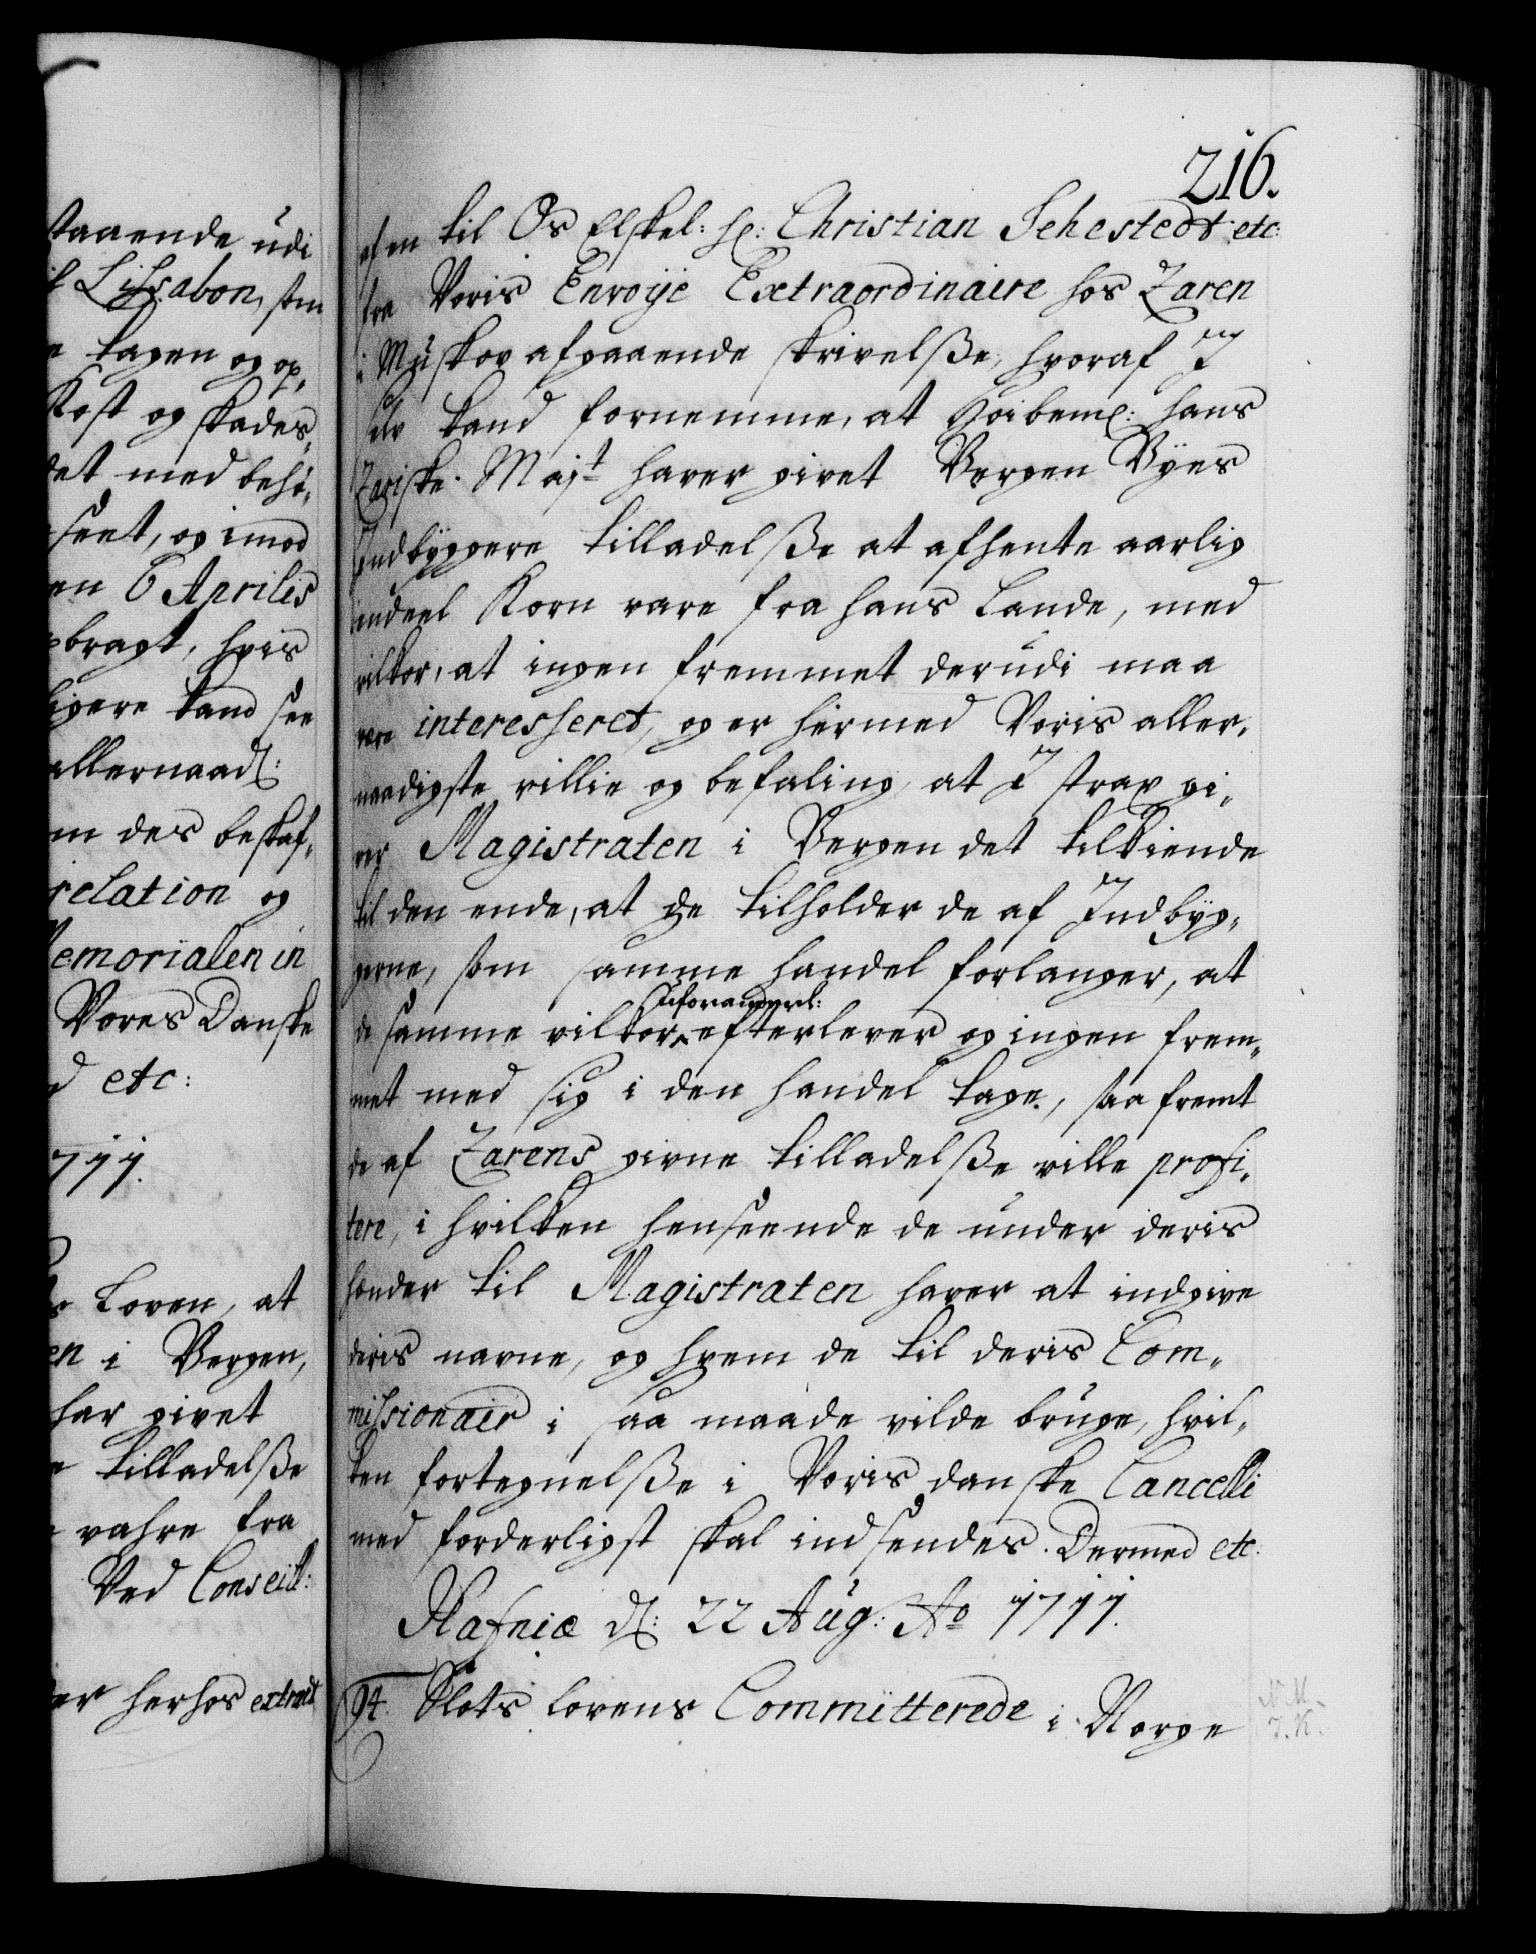 taaende udi
Lissabon, som
tagen og op¬
Kost og skades¬
det med behø¬
seet, og imod
en 6 Aprilis
bragt, hvis
ligere kand see
allernaad:
m des beskaf¬
relation og
Memorialen in
Vores Danske
etc:
1711.
Loven, at
en i Bergen,
har givet
tilladelsse
vahre fra
Ved Conseill:
er herhos extract
216.
af en til Os Elskel: Hr: Christian Sehestedt etc:
fra Voris Envoÿe Extraordinaire hos Zaren
i Muskov afgaaende skrivelsse, hvoraf I
self kand fornemme, at Høibemt: hans
Zariske Majt haver givet Bergen Byes
Indbyggere tilladelsse at afhente aarlig
endeel Korn vare fra hans Lande, med
vilkor, at ingen fremmet derudi maa
være interesseret, og er hermed Voris aller¬
naadigste villie og befaling, at I strax gi¬
ver Magistraten i Bergen det tilkiende
til den ende, at de tilholder de af Indbyg¬
gerne, som samme handel forlanger, at
de samme vilkor uforanderl: efterlever og ingen frem¬
met med sig i den handel tage, saa fremt
de af Zarens givne tilladelsse ville profi¬
tere, i hvilken henseende de under deris
hænder til Magistraten haver at indgive
deris navne, og hvem de til deris Com¬
missionair i saa maade vilde bruge, hvil¬
ken fortegnelsse i Voris danske Cancelli
med forderligst skal indsendes. Dermed etc:
Hafniæ d: 22 Aug: Ao 1711.
94. Slots Lovens Committerede i Norge
N. M.